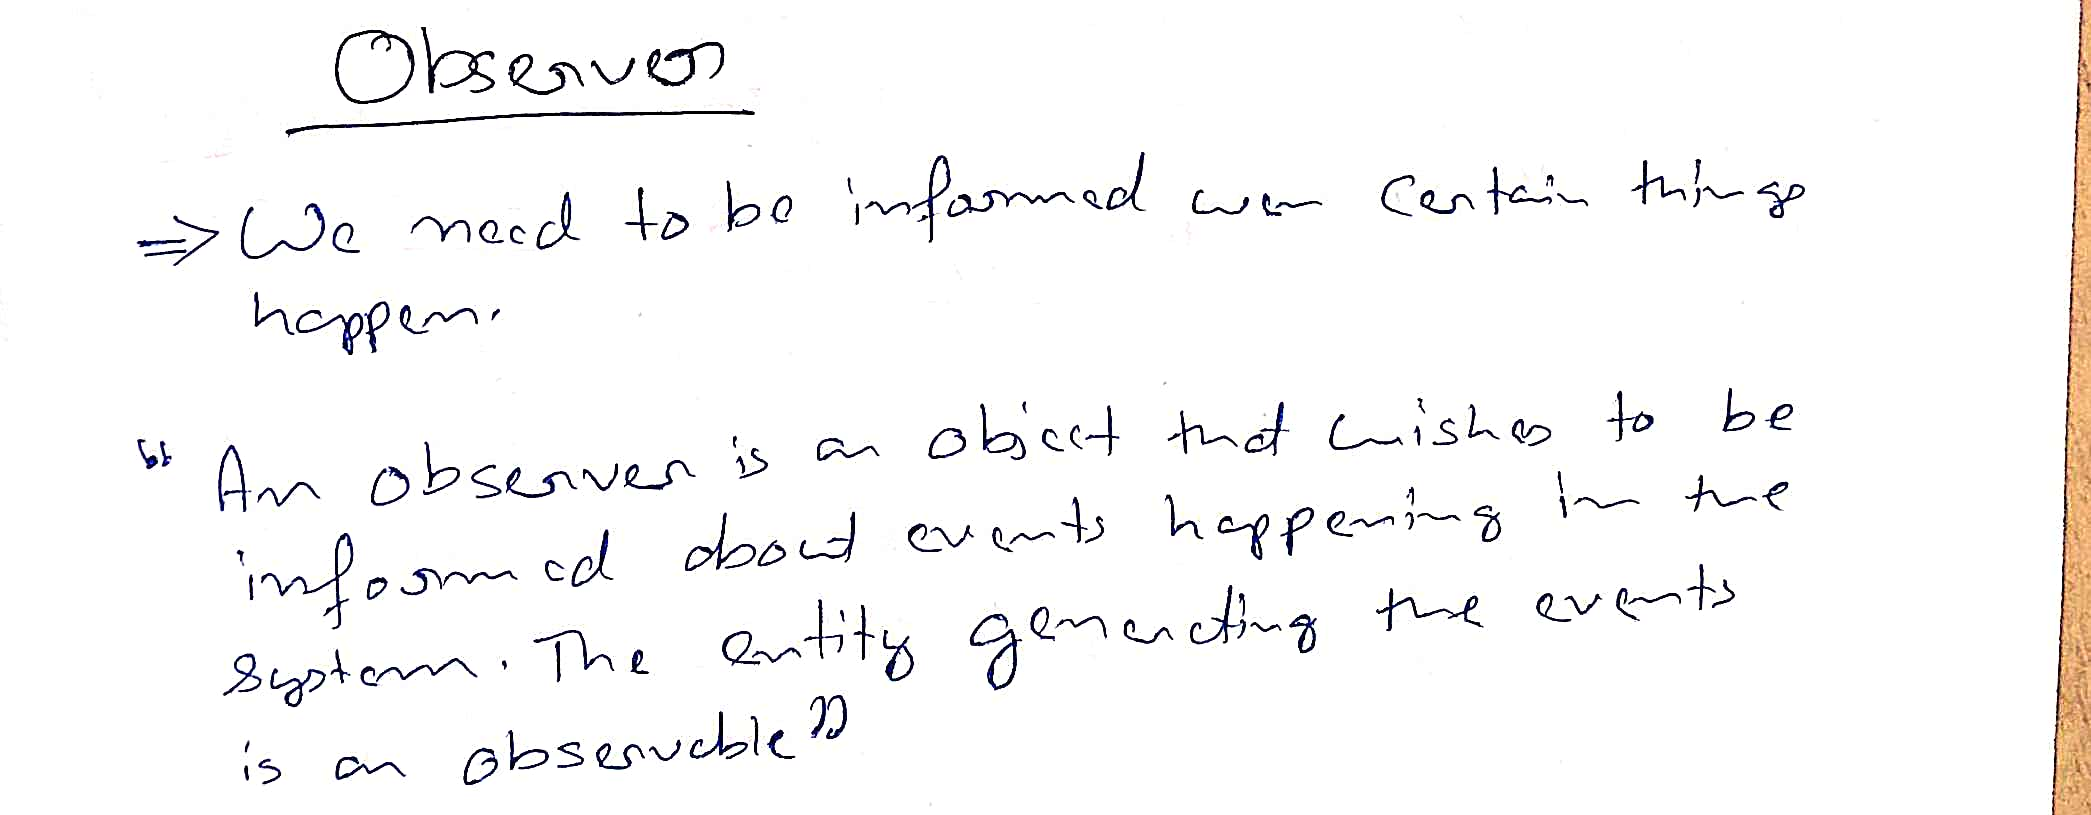 Observer
⇒ We need to be informed wen certain things
happen.
“ An observer is an object that wishes to be
informed about events happening in the
system. The entity generating the events
is an observable ”